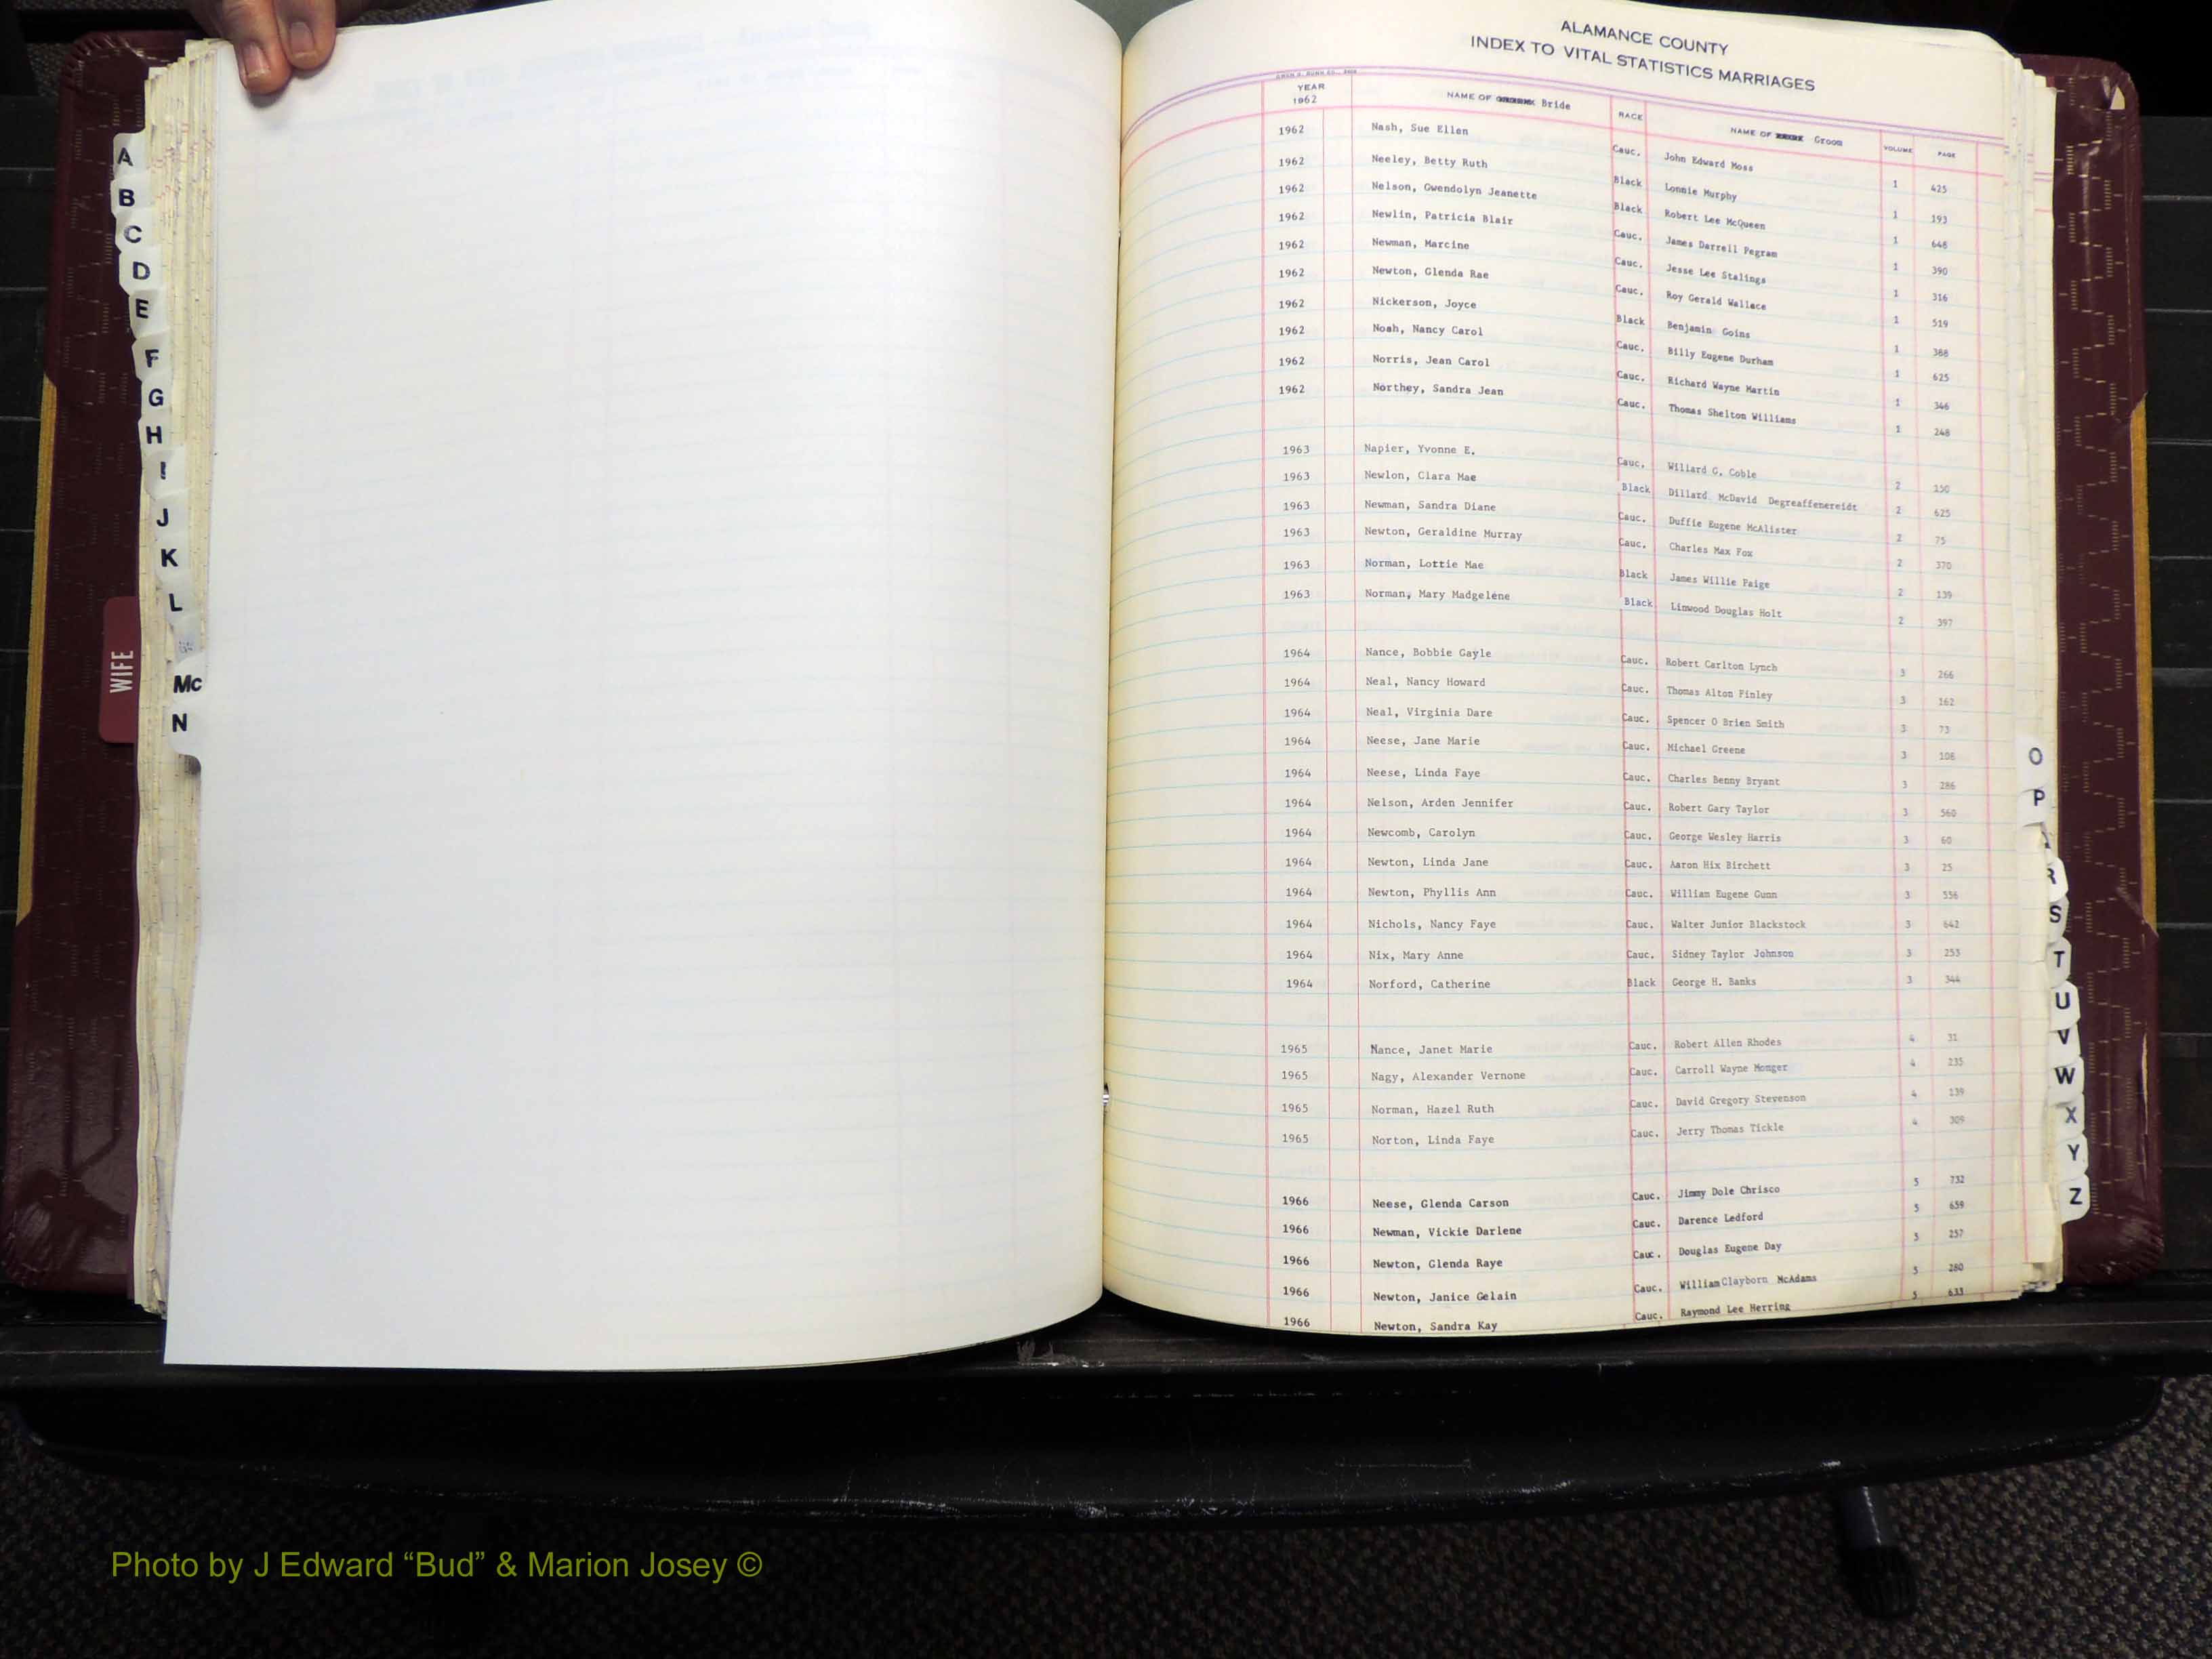 ALAMANCE COUNTY
INDEX TO VITAL STATISTICS MARRIAGES
YEAR 1962 NAME OF Bride RACE NAME OF Groom VOLUME PAGE
1962 Nash, Sue Ellen Cauc. John Edward Moss 1 425
1962 Neeley, Betty Ruth Black Lonnie Murphy 1 193
1962 Nelson, Gwendolyn Jeanette Black Robert Lee McQueen 1 648
1962 Newlin, Patricia Blair Cauc. James Darrell Pegram 1 390
1962 Newman, Marcine Cauc. Jesse Lee Stalings 1 316
1962 Newton, Glenda Rae Cauc. Roy Gerald Wallace 1 519
1962 Nickerson, Joyce Black Benjamin Goins 1 388
1962 Noah, Nancy Carol Cauc. Billy Eugene Durham 1 625
1962 Norris, Jean Carol Cauc. Richard Wayne Martin 1 346
1962 Northey, Sandra Jean Cauc. Thomas Shelton Williams 1 248
1963 Napier, Yvonne E. Cauc. Willard G. Coble 2 150
1963 Newlon, Clara Mae Black Dillard McDavid Degreaffenereidt 2 625
1963 Newman, Sandra Diane Cauc. Duffie Eugene McAlister 2 75
1963 Newton, Geraldine Murray Cauc. Charles Max Fox 2 370
1963 Norman, Lottie Mae Black James Willie Paige 2 139
1963 Norman, Mary Madgelene Black Linwood Douglas Holt 2 397
1964 Nance, Bobbie Gayle Cauc. Robert Carlton Lynch 3 266
1964 Neal, Nancy Howard Cauc. Thomas Alton Finley 3 162
1964 Neal, Virginia Dare Cauc. Spencer O Brien Smith 3 73
1964 Neese, Jane Marie Cauc. Michael Greene 3 108
1964 Neese, Linda Faye Cauc. Charles Benny Bryant 3 286
1964 Nelson, Arden Jennifer Cauc. Robert Gary Taylor 3 560
1964 Newcomb, Carolyn Cauc. George Wesley Harris 3 60
1964 Newton, Linda Jane Cauc. Aaron Hix Birchett 3 25
1964 Newton, Phyllis Ann Cauc. William Eugene Gunn 3 556
1964 Nichols, Nancy Faye Cauc. Walter Junior Blackstock 3 642
1964 Nix, Mary Anne Cauc. Sidney Taylor Johnson 3 253
1964 Norford, Catherine Black George H. Banks 3 344
1965 Nance, Janet Marie Cauc. Robert Allen Rhodes 4 31
1965 Nagy, Alexander Vernone Cauc. Carroll Wayne Monger 4 235
1965 Norman, Hazel Ruth Cauc. David Gregory Stevenson 4 239
1965 Norton, Linda Faye Cauc. Jerry Thomas Tickle 4 309
1966 Neese, Glenda Carson Cauc. Jimmy Dole Chrisco 5 732
1966 Newman, Vickie Darlene Cauc. Darence Ledford 5 659
1966 Newton, Glenda Raye Cauc. Douglas Eugene Day 5 257
1966 Newton, Janice Gelain Cauc. William Clayborn McAdams 5 280
1966 Newton, Sandra Kay Cauc. Raymond Lee Herring 5 633
A
B
C
D
E
F
G
H
I
J
K
L
Mc
N
WIFE
O
P
R
S
T
U
V
W
X
Y
Z
Photo by J Edward “Bud” & Marion Josey ©